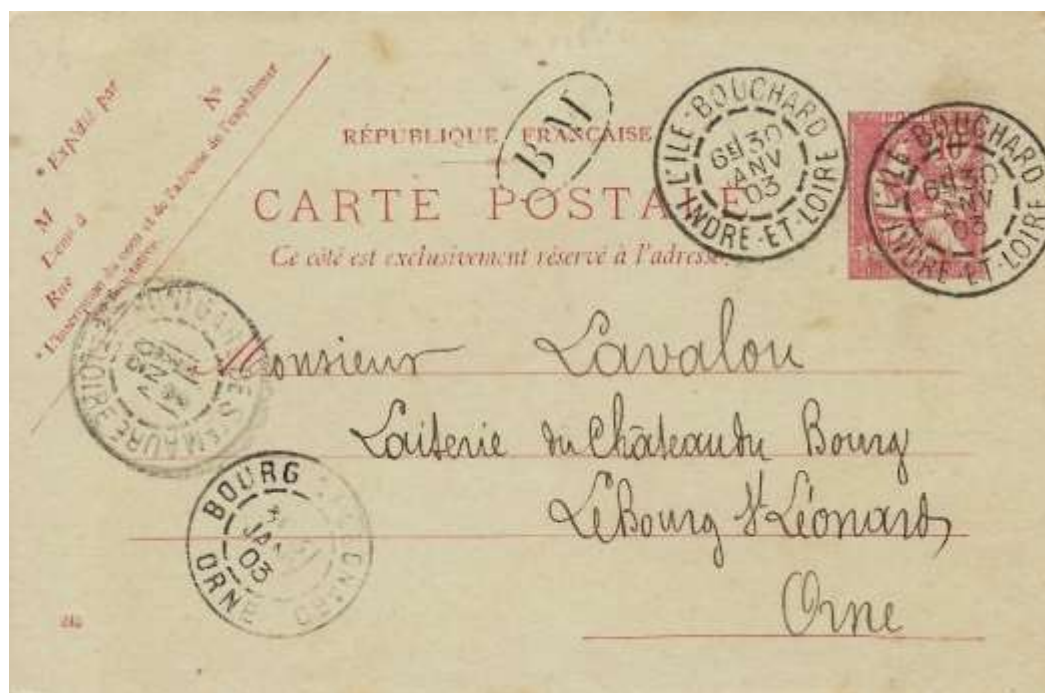 * Expédié par
M
Demeurant à
Rue
N°
* L'inscription du nom et de l'adresse de l'expéditeur
est facultative.
RÉPUBLIQUE FRANÇAISE
CARTE POSTALE
Ce côté est exclusivement réservé à l'adresse.
BM
L'ILE-BOUCHARD
6E 30
JANV
03
INDRE-ET-LOIRE
L'ILE-BOUCHARD
6E 30
JANV
03
INDRE-ET-LOIRE
Monsieur Lavalou
Laiterie du Château du Bourg
Le Bourg St Léonard
Orne
BOURG
JAN
03
ORNE